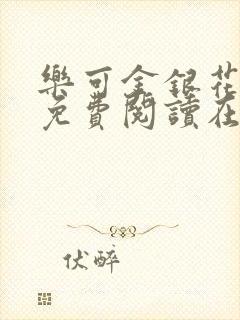 樂可金銀花
免費閱讀在
伏醉